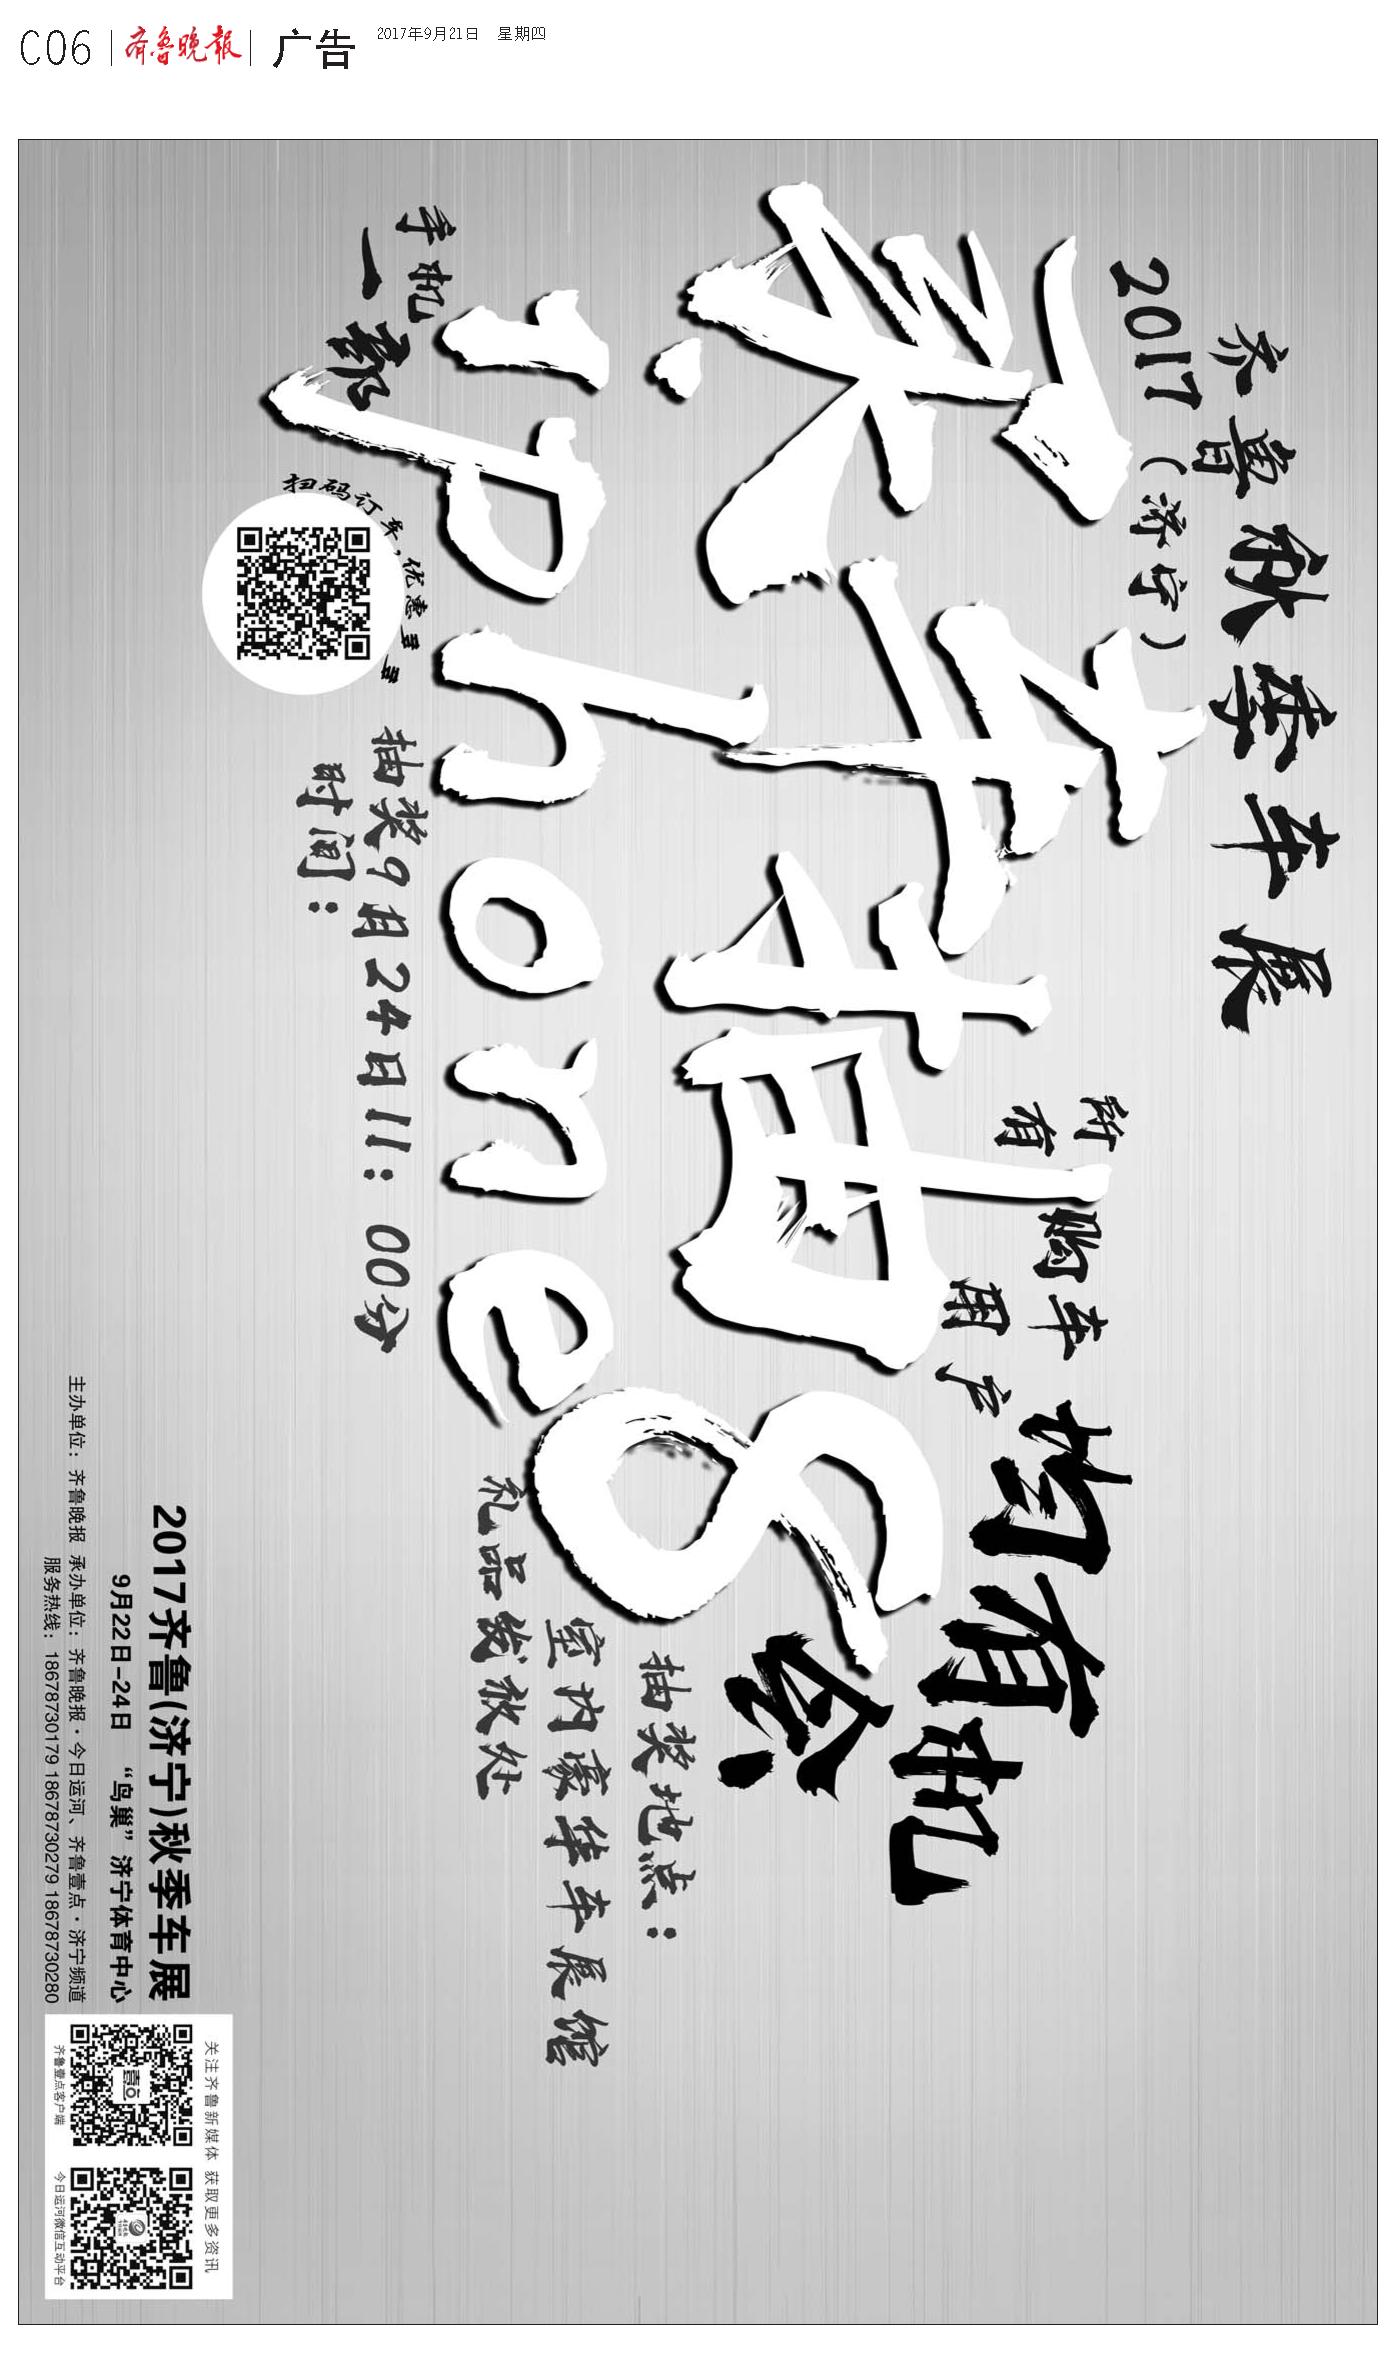 C06 齐鲁晚报 广告 2017年9月21日 星期四
齐鲁秋季车展
2017（济宁）
所有购车用户均有机会!
买车抽iphone8
手机一部
抽奖地点：
室内豪华车展馆
礼品发放处
抽奖时间：9月24日11：00分
扫码订车，优惠重重
2017齐鲁(济宁)秋季车展
9月22日-24日 “鸟巢”济宁体育中心
主办单位：齐鲁晚报 承办单位：齐鲁晚报·今日运河、齐鲁壹点·济宁频道
服务热线：18678730179 18678730279 18678730280
关注齐鲁新媒体 获取更多资讯
壹点
齐鲁壹点客户端
今日运河微信互动平台